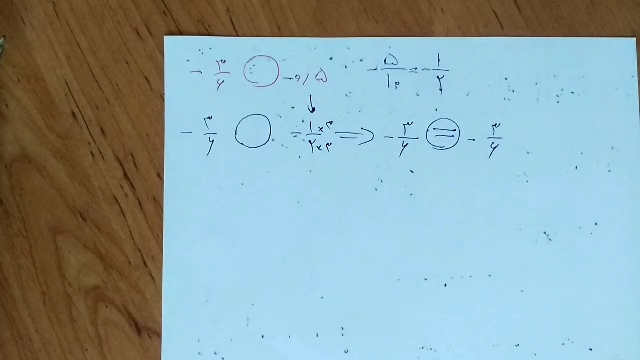 - ۳/۶ ○ -۰/۵ -۵/۱۰ = -۱/۲
- ۳/۶ ○ - ۱×۳/۲×۳ ⇒ - ۳/۶ = - ۳/۶